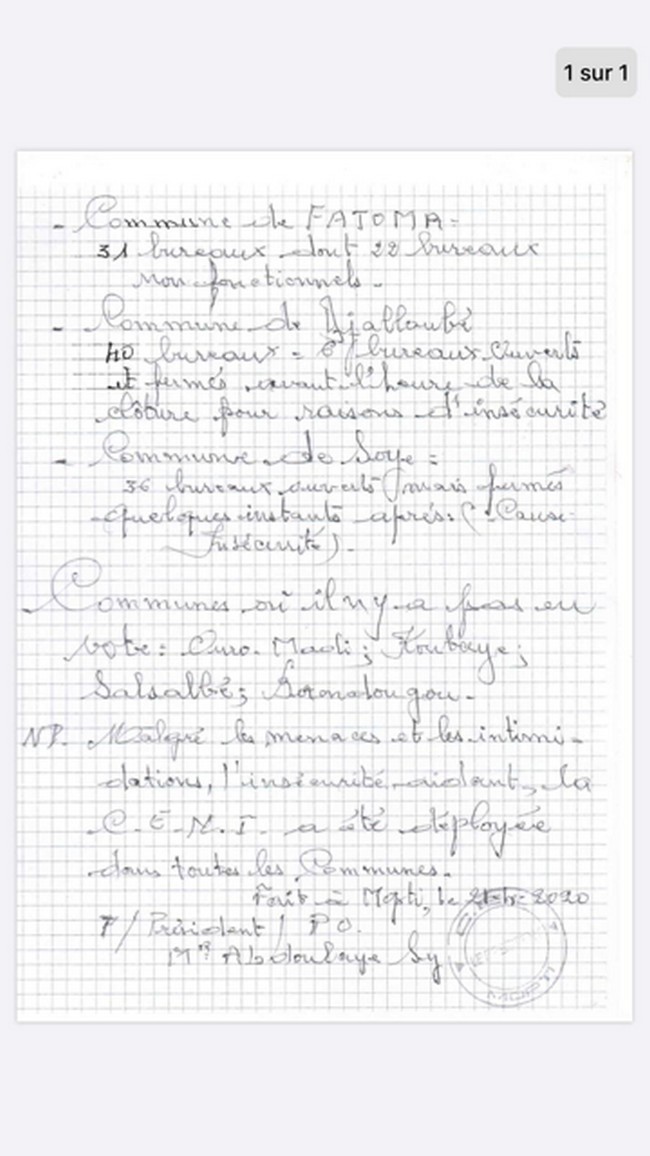 1 sur 1
- Commune de FATOMA =
31 bureaux dont 22 bureaux
non fonctionnels.
- Commune de Djalloubé
40 bureaux = 6 bureaux ouverts
et fermés avant l'heure de la
clôture pour raisons d'insécurité
- Commune de Soye =
36 bureaux ouverts mais fermés
quelques instants après: (Cause
Insécurité).
- Communes où il n'y a pas eu
vote: Ouro-Modi; Koubaye;
Salsalbé; Borondougou.
NB. Malgré les menaces et les intimi-
dations, l'insécurité aidant, la
C.E.N.I. a été déployée
dans toutes les Communes.
Fait à Mopti, le 2020
P/ Président / P O.
Mr Abdoulaye Sy
MOPTI